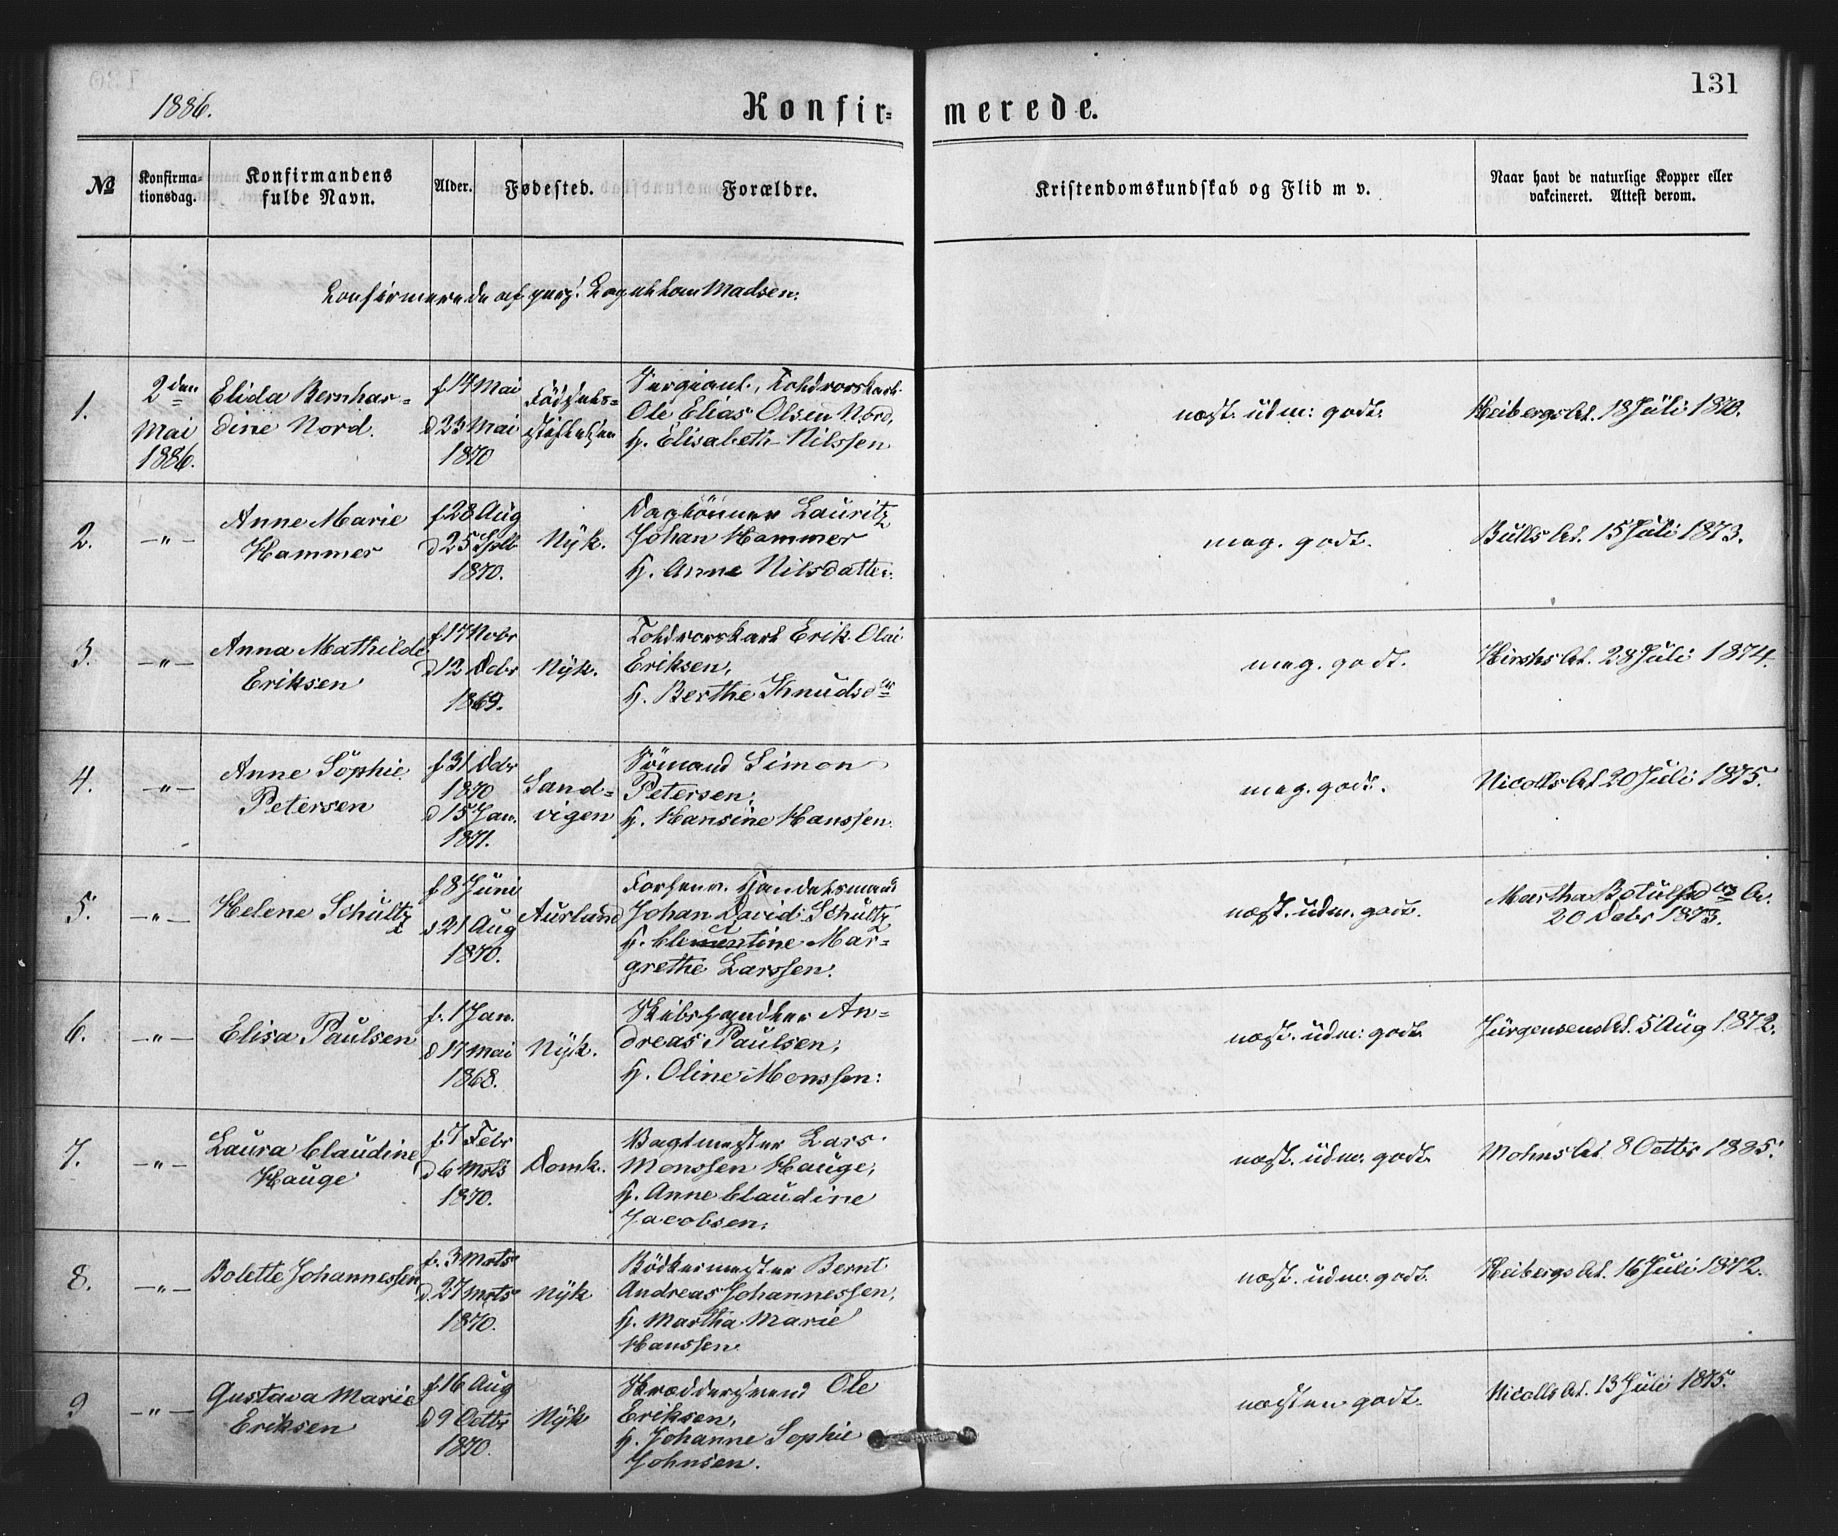 131
1886.
Konfir=
merede.
№
Konfirma-
tionsdag.
Konfirmandens
fulde Navn.
Alder.
Fødested.
Forældre.
Kristendomskundskab og Flid m v.
Naar havt de naturlige Kopper eller
vakcineret. Attest derom.
Konfirmerede af pers. Kapellan Madsen:
1.
2den
Mai
1886.
Elida Bernhar=
dine Nord.
f. 14 Mai
d 23 Mai
1870
Fødsels=
stiftelsen
Sergiant, Toldrorskarl
Ole Elias Olsen Nord,
H. Elisabeth Nilssen
næst. udm: godt.
Heibergs At. 18 Juli 1870.
2.
—"—
Anne Marie
Hammer
f. 28 Aug
d 25 Sptb
1870.
Nyk.
Daglönner Lauritz
Johan Hammer
H. Anne Nilsdatter
meg. godt.
Bulls At. 15 Juli 1873.
3.
—"—
Anna Mathilde
Eriksen
f. 17 Nobr
d 12 Debr
1869.
Nyk.
Toldrorskarl Erik Olai
Eriksen,
H. Berthe Knudsdtr
meg. godt.
Hirschs At. 28 Juli 1874.
4.
—"—
Anne Sophie
Petersen
f 31 Debr
1870
d 15 Jan.
1871.
Sand=
vigen
Sömand Simon
Petersen,
H. Hansine Hanssen.
meg. godt.
Nicolls At 20 Juli 1875.
5.
—"—
Helene Schultz
f. 8 Juni
d 21 Aug
1870.
Aurland
Forhenv. Handelsmand
Johan David Schultz
H. Clementine Mar=
grethe Larssen.
næst. udm. godt.
Martha Botolfsdtrs At.
20 Debr 1873.
6.
—"—
Elisa Paulsen
f. 1 Jan.
d 17 Mai
1868.
Nyk.
Skibshandler An=
dreas Paulsen,
H. Oline Monssen:
næst. udm: godt.
Jürgensens At. 5 Aug 1872.
7.
—"—
Laura Claudine
Hauge
f. 7 Febr
d 6 Mrts
1870.
Domk.
Vagtmester Lars
Monssen Hauge,
H. Anne Claudine
Jacobsen.
næst. udm. godt.
Mohns At. 8 Octbr 1885.
8.
—"—
Bolette Johannessen
f. 3 Mrts
d. 27 Mrts
1870.
Nyk
Bödkermester Bernt
Andreas Johannessen,
H. Martha Marie
Hanssen
næst. udm. godt.
Heibergs At. 16 Juli 1872.
9
—"—
Gustava Marie
Eriksen
f. 16 Aug
d 9 Octbr
1870.
Nyk
Skræddersvend Ole
Eriksen,
H. Johanne Sophie
Johnsen.
næsten godt.
Nicolls At. 13 Juli 1875.